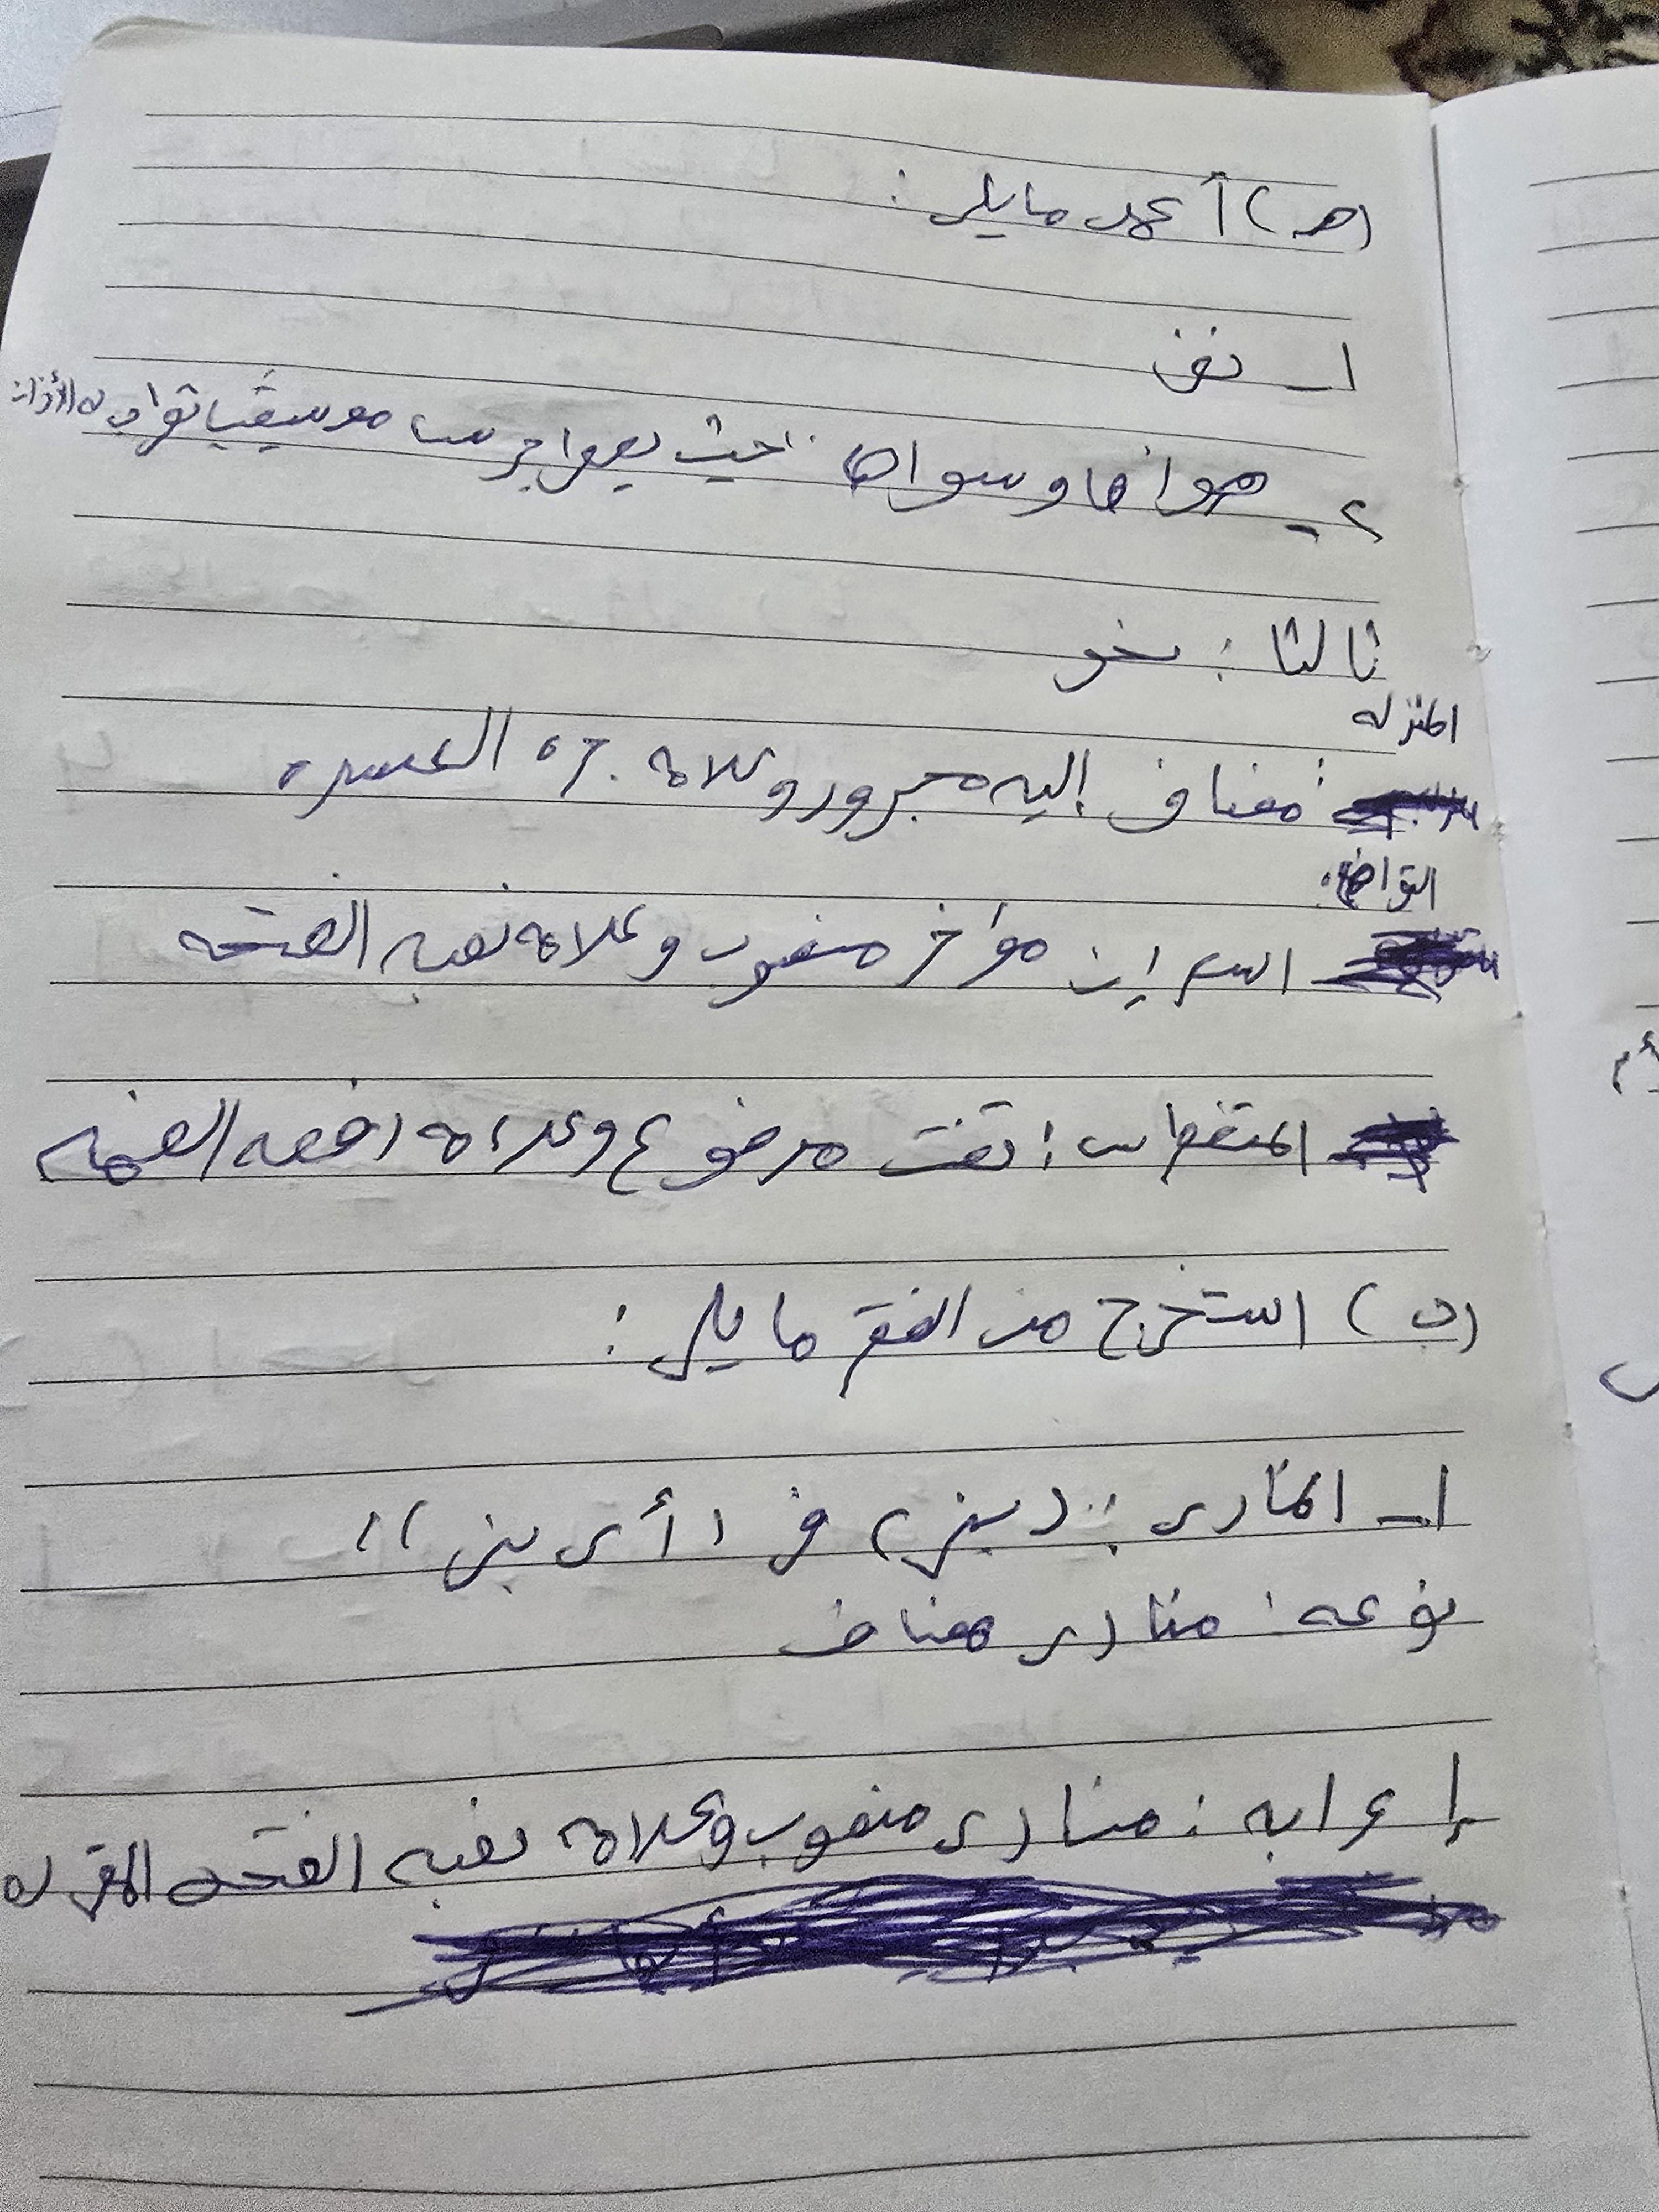 (هـ) أكمل ما يلى :
١ـ نفى
٢ـ هواها وسواها حيث يعطى جرسا موسيقيا تطرب له الأذان
ثالثا : نحو
المنزلة
: مضاف إليه مجرور وعلامة جره الكسرة
التواضع
اسم إن مؤخر منصوب وعلامة نصبه الفتحة
: نعت مرفوع وعلامة رفعه الضمة
(ب) استخرج من الفقرة ما يلى :
١ـ المنادى : (بنى) فى (أى بنى)
نوعه : منادى مضاف
إعرابه : منادى منصوب وعلامة نصبه الفتحة المقدرة